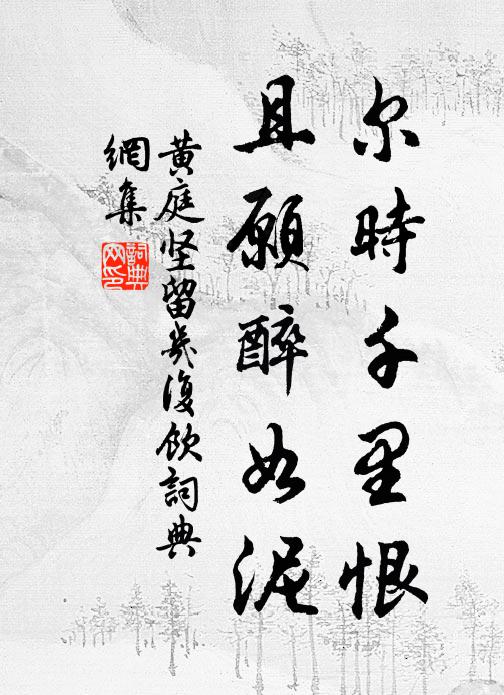 尔時千里恨
且願醉如泥
黄庭坚留幾復飲詞典
網集
詞典
网印